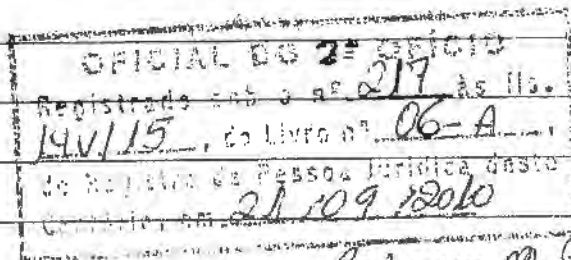 OFICIAL DO 2º OFÍCIO
Registrado sob o nº 217 às fls.
14V/15, do Livro nº 06-A,
do Registro de Pessoa Jurídica deste
em 21/09/2010